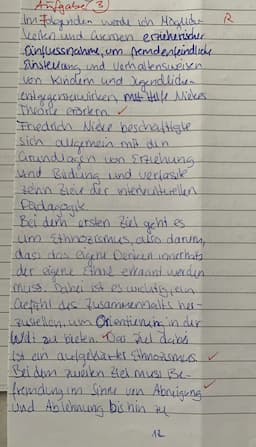 Aufgabe 3)
Im Folgenden werde ich Möglich- R
keiten und Grenzen erzieherischer
Einflussnahme, um fremdenfeindliche
Einstellung und Verhaltensweisen
von Kindern und Jugendlichen
entgegenzuwirken, mit Hilfe Niekes
Theorie erörtern.
Friedrich Nieke beschäftigte
sich allgemein mit den
Grundlagen von Erziehung
und Bildung und verfasste
zehn Ziele der interkulturellen
Pädagogik.
Bei dem ersten Ziel geht es
um Ethnozismus, also darum,
dass das eigene Denken innerhalb
der eigene Ethnie erkannt werden
muss. Dabei ist es wichtig, ein
Gefühl des Zusammenhalts her-
zustellen, um Orientierung in der
Welt zu bieten. Das Ziel dabei
ist ein aufgeklärter Ethnozismus.
Bei dem zweiten Ziel muss Be-
fremdung im Sinne von Abneigung
und Ablehnung bis hin zu
12